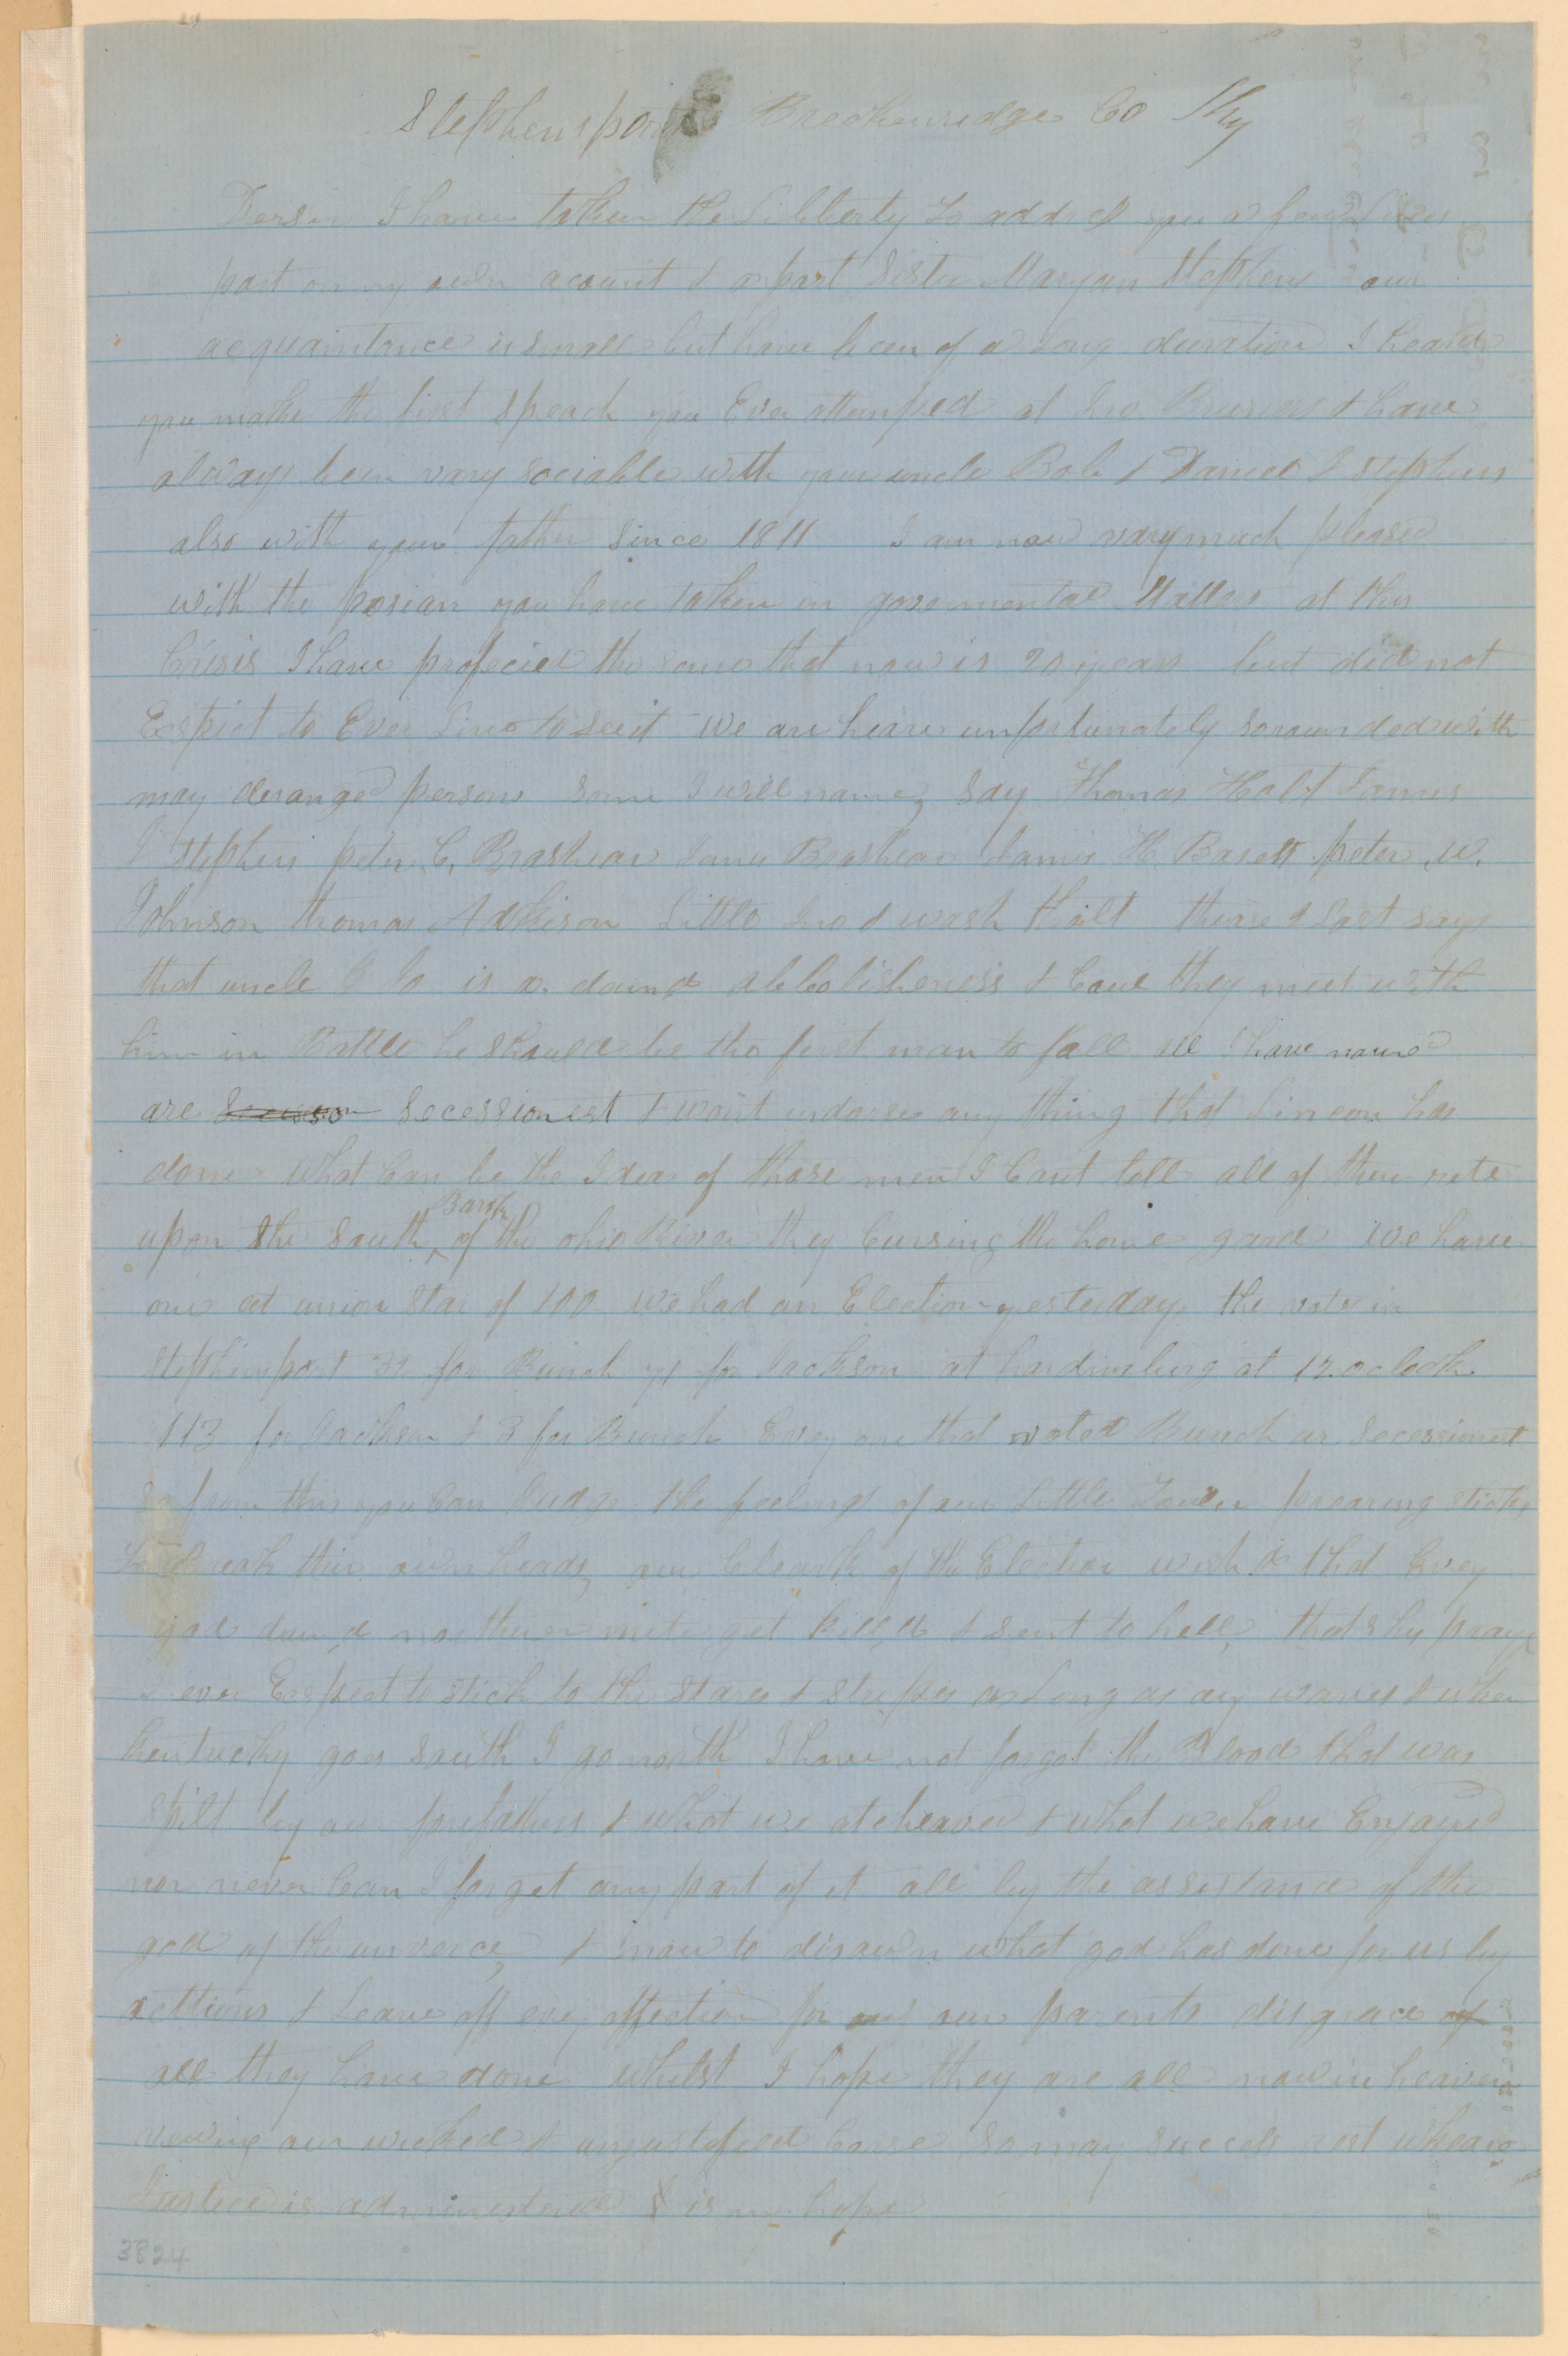 Stephensport Breckenridge Co Ky
Dersir I have taken the Libberty to address you a few Lines
part on my own acount & a part Sister Maryan Stephens our
acquaintance is small but have been of a Long duration I heard
you make the first speach you Ever attempted at Jno & have
always been vary sociable with your uncle Bob & Daniel J Stephens
also with your father since 1811 I am now vary much pleased
with the posian you have taken in govermental Matters at this
Crisis I have profecied the same that now is 20 years but did not
Expict to Ever Live to see it we are heare unfortunately soraunded with
may deranged persons some I will name, say Thomas Holt James
J Stephens peter C. Brashear James Brashear James H. Basett peter W.
Johnson thomas Adkison Little Jno & wash Holt these Last says
that uncle Jo is a damd abbolisheness & Could they meet with
him in Battle he should be the first man to fall all I have named
are secessionest & wont indorse any thing that Lincon has
done what Can be the Idea of those men I Cant tell all of them rite
upon the South Bank of the ohio River they Cursing the home gard we have
one at union Star of 100 we had an Election yesterday the votes in
Stephensport 39 for Bunch 41 for Jackson at hardinsburg at 12 oclock
113 for Jackson & 3 for Bunch Evry one that voted Bunch ar Secessionest
So from this you Can Judge the feelings of our Little Town prearing sticks
to Break thir own heads, our Cleark of the Election wish is that Evry
god damd northerner mite get killd & sent to hell, thats his prayr
I ever Expect to stick to the stars & stripes as Long as any waves & when
Kentucky goes South I go north I have not forgot the Blood that was
spilt by our forefathers & what we atcheaved & what we have Enjoyed
nor never Can I forget any part of it all by the assistance of the
god of the unverce, & now to disawn what god has done for us by
acttions & Leave off evry affection for our parents disgrace
all they have done whilst I hope they are all now in heaven
vewing our wicked & unjustified Corse, so may success rest wheare
Justice is administered is my hope
3824